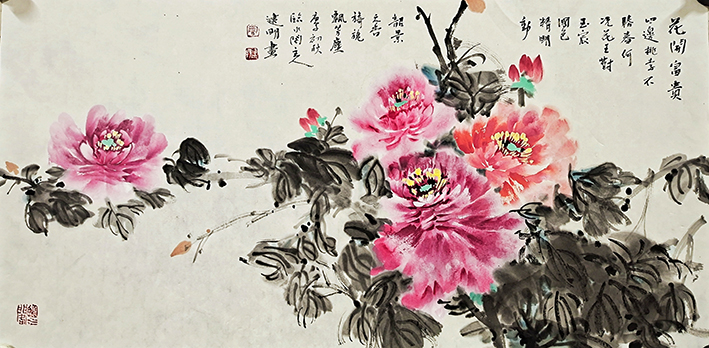 花開富貴
山邊桃李不
勝春何
況花王對
玉宸
國色
精明
韶景
天香
旖旎
飄芳塵
庚子初秋
臨水閣主人
建明畫